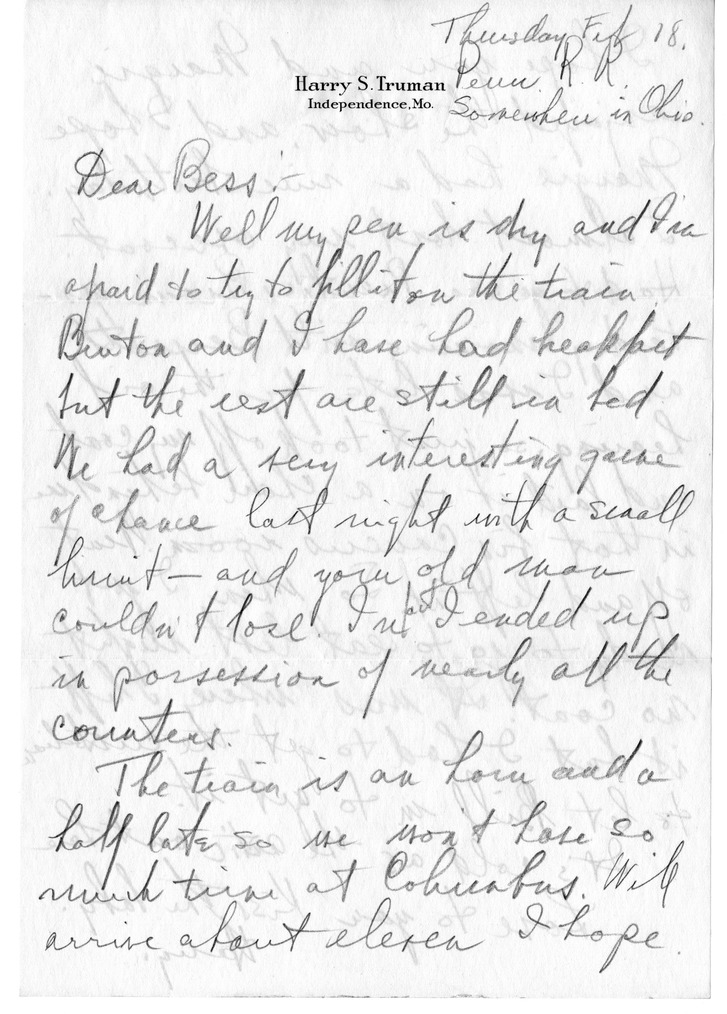 Thursday Feb 18.
Penn. R. R.
Somewhere in Ohio.
Harry S. Truman
Independence, Mo.
Dear Bess:-
Well my pen is dry and I'm
afraid to try to fill it on the train.
Benton and I have had breakfast
but the rest are still in bed
We had a very interesting game
of chance last night with a small
limit — and your old man
couldn't lose. In fact I ended up
in possession of nearly all the
counters.
The train is an hour and a
half late so we won't have so
much time at Columbus. Will
arrive about eleven I hope.